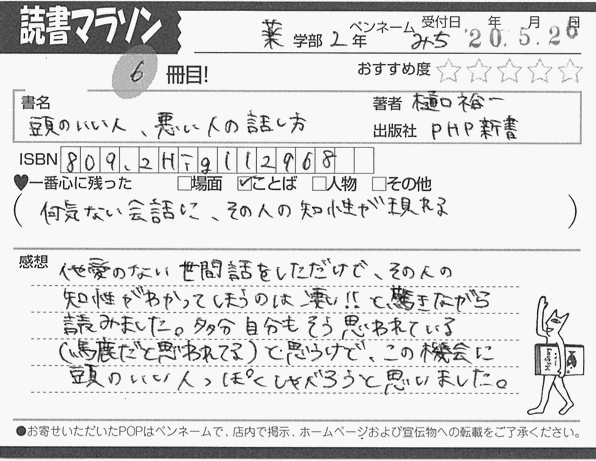 読書マラソン
薬 学部 2 年 ペンネーム みち 受付日 '20.5.26 年 月 日
6 冊目!
おすすめ度 ☆☆☆☆☆
書名
頭のいい人、悪い人の話し方
著者 樋口裕一
出版社 PHP新書
ISBN 809.2H-g112968
♥一番心に残った □場面 ☑ことば □人物 □その他
(何気ない会話に、その人の知性が現れる)
感想
他愛のない世間話をしただけで、その人の
知性がわかってしまうのは凄い!!と、驚きながら
読みました。多分自分もそう思われている
(馬鹿だと思われてる)と思うけど、この機会に
頭のいい人っぽくしゃべろうと思いました。
●お寄せいただいたPOPはペンネームで、店内で掲示、ホームページおよび宣伝物への転載をご了承ください。